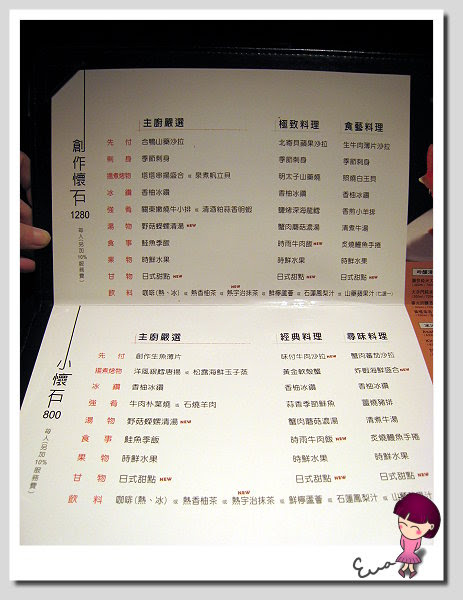 創作懷石
1280
每人(另加10%服務費)
主廚嚴選 極致料理 食藝料理
先付 合鴨山藥沙拉 北寄貝蘋果沙拉 生牛肉薄片沙拉
刺身 季節刺身 季節刺身 季節刺身
揚煮烤物 明太子山藥燒 照燒白玉貝
冰鑽 香柚冰鑽 香柚冰鑽 香柚冰鑽
強肴 關東嫩燒牛小排 或 清酒粕蒜香明蝦 鹽烤深海龍鱈 香煎小羊排
湯物 野菇蠑螺清湯 NEW 蟹肉蘑菇濃湯 清煮牛湯
食事 鮭魚季飯 時雨牛肉飯 NEW 炙燒鱺魚手捲
果物 時鮮水果 時鮮水果 時鮮水果
甘物 日式甜點 NEW 日式甜點 NEW 日式甜點 NEW
飲料 咖啡(熱、冰) 或 熱香柚茶 或 熱宇治抹茶 NEW 或 鮮檸蘆薈 或 石蓮鳳梨汁 或 山藥蘋果汁
小懷石
800
每人(另加10%服務費)
主廚嚴選 經典料理 尋味料理
先付 創作生魚薄片 味付牛肉沙拉 NEW 蟹肉蕃茄沙拉
揚煮烤物 洋風銀鱈唐揚 或 松露海鮮玉子蒸 黃金軟殼蟹 炸蝦海鮮盛合 NEW
冰鑽 香柚冰鑽 香柚冰鑽 香柚冰鑽
強肴 牛肉朴葉燒 或 石燒羊肉 蒜香季節鮮魚 薑燒豬排
湯物 野菇蠑螺清湯 NEW 蟹肉蘑菇濃湯 清煮牛湯
食事 鮭魚季飯 時雨牛肉飯 NEW 炙燒鱺魚手捲
果物 時鮮水果 時鮮水果 時鮮水果
甘物 日式甜點 NEW 日式甜點 NEW 日式甜點 NEW
飲料 咖啡(熱、冰) 或 熱香柚茶 或 熱宇治抹茶 NEW 或 鮮檸蘆薈 或 石蓮鳳梨汁 或 山藥
Eva